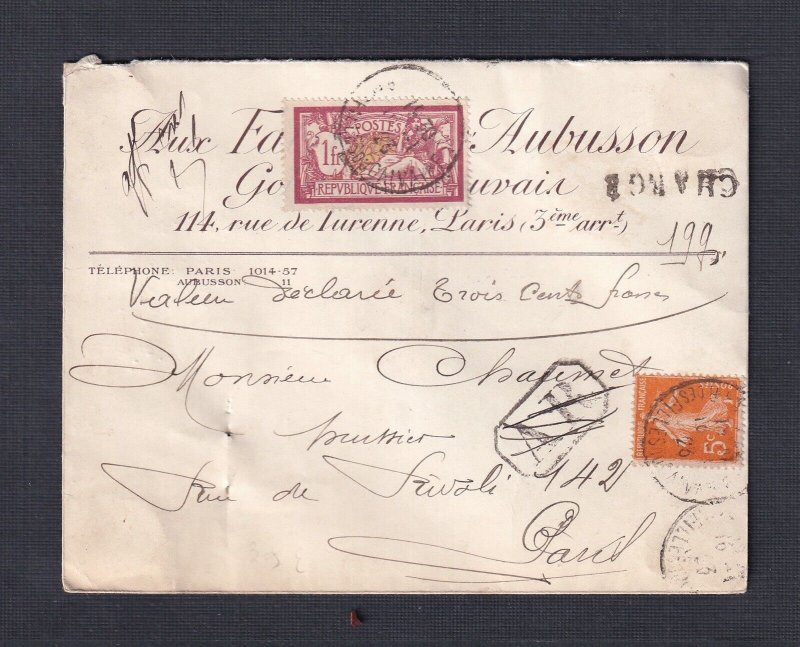 Aux Fa Aubusson
Go uvais
114, rue de Turenne, Paris (3ème arrt)
POSTES
1fr
REPVBLIQVE FRANÇAISE
CHARGE
199
TÉLÉPHONE: PARIS 1014-57
AUBUSSON 11
Valeur Déclarée Trois Cents francs
Monsieur Chaumet
AR
huissier
Rue de Rivoli 142
Paris
REPUBLIQUE FRANÇAISE
5c